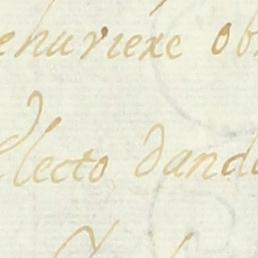 ehuviéxe ob
lecto dando